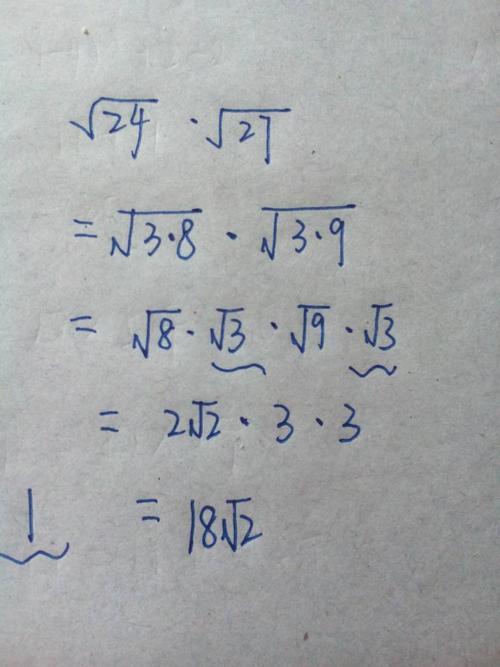 √24 · √27
= √3·8 · √3·9
= √8 · √3 · √9 · √3
= 2√2 · 3 · 3
1 = 18√2